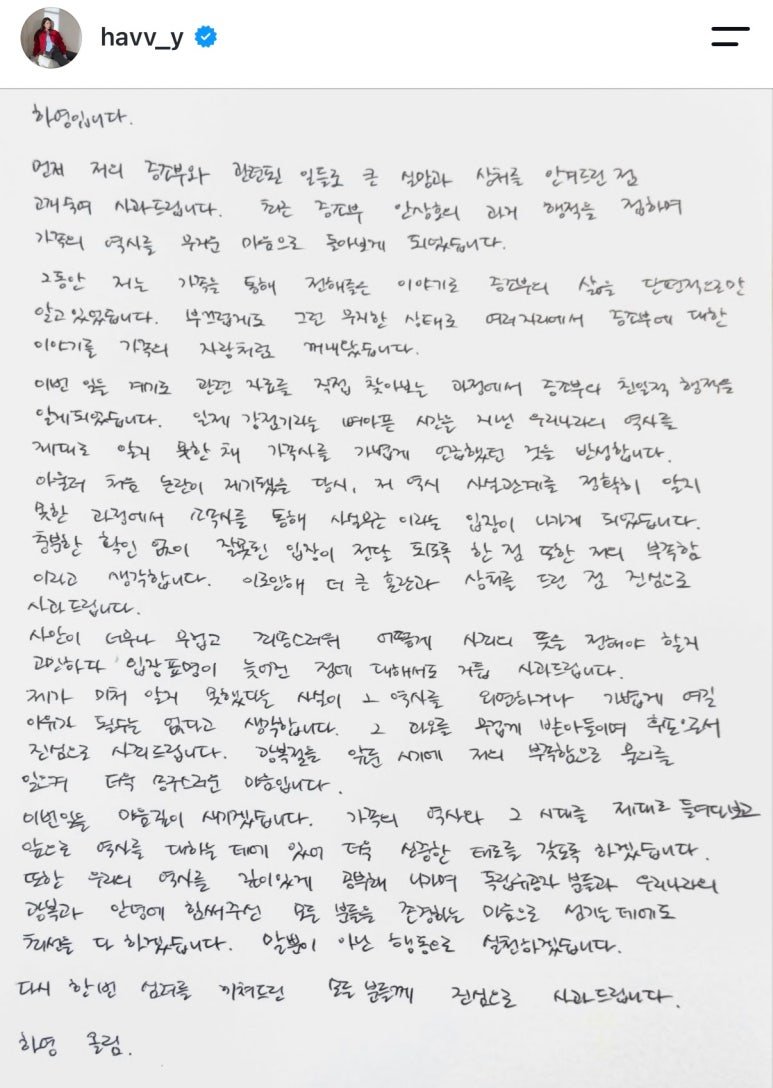 havv_y
하영입니다.
먼저 저의 증조부와 관련된 일들로 큰 실망과 상처를 안겨드린 점
고개 숙여 사과드립니다. 최근 증조부 안상호의 과거 행적을 접하며
가족의 역사를 무거운 마음으로 돌아보게 되었습니다.
그동안 저는 가족을 통해 전해들은 이야기로 증조부의 삶을 단편적으로만
알고 있었습니다. 부끄럽게도 그런 무지한 상태로 여러 자리에서 증조부에 대한
이야기를 가족의 자랑처럼 꺼내왔습니다.
이번 일을 계기로 관련 자료를 직접 찾아보는 과정에서 증조부의 친일적 행적을
알게되었습니다. 일제 강점기라는 뼈아픈 시간을 지난 우리나라의 역사를
제대로 알지 못한 채 가족사를 가볍게 언급했던 것을 반성합니다.
아울러 처음 논란이 제기됐을 당시, 저 역시 사실관계를 정확히 알지
못한 과정에서 소속사를 통해 사실무근 이라는 입장이 나가게 되었습니다.
충분한 확인 없이 잘못된 입장이 전달 되도록 한 점 또한 저의 부족함
이라고 생각합니다. 이로인해 더 큰 혼란과 상처를 드린 점 진심으로
사과드립니다.
사안이 너무나 무겁고 죄송스러워 어떻게 사죄의 뜻을 전해야 할지
고민하다 입장표명이 늦어진 점에 대해서도 거듭 사과드립니다.
제가 미처 알지 못했다는 사실이 그 역사를 외면하거나 가볍게 여길
이유가 될수는 없다고 생각합니다. 그 과오를 무겁게 받아들이며 후손으로서
진심으로 사죄드립니다. 광복절을 앞둔 시기에 저의 부족함으로 물의를
일으켜 더욱 송구스러운 마음입니다.
이번일을 마음깊이 새기겠습니다. 가족의 역사와 그 시대를 제대로 들여다보고
앞으로 역사를 대하는 데에 있어 더욱 신중한 태도를 갖도록 하겠습니다.
또한 우리의 역사를 깊이있게 공부해 나가며 독립유공자 분들과 우리나라의
광복과 안녕에 힘써주신 모든 분들을 존경하는 마음으로 섬기는데에도
최선을 다 하겠습니다. 말뿐이 아닌 행동으로 실천하겠습니다.
다시 한번 심려를 끼쳐드린 모든 분들께 진심으로 사과드립니다.
하영 올림.